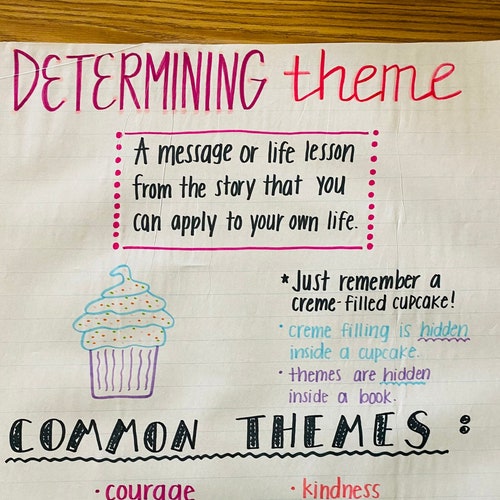 DETERMINING theme
A message or life lesson
from the story that you
can apply to your own life.
* Just remember a
creme-filled cupcake!
· creme filling is hidden
inside a cupcake.
· themes are hidden
inside a book.
COMMON THEMES :
· courage · kindness